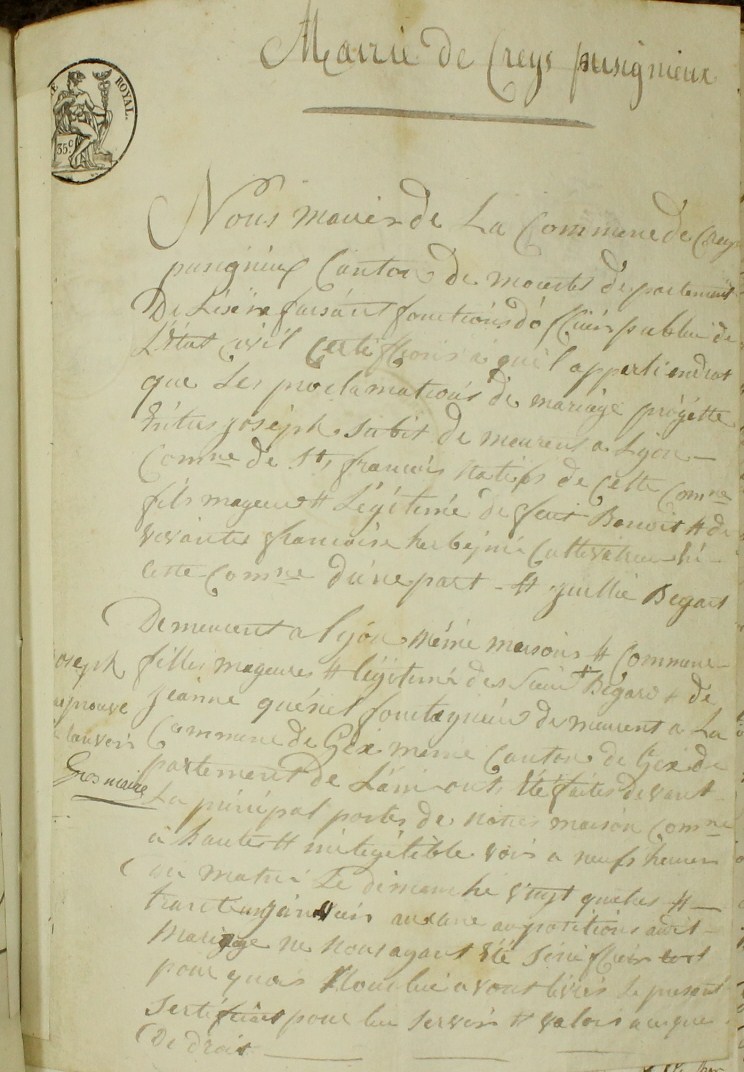 Mairie de Creys pusignieux
ROYAL.
35c
Nous maire de La Commune de Creys
pusignieux Canton de morestel departement
De Lisere faisant fonctions dofficier public de
L'état Civil Certifions a qu'il appartiendrat
que Les proclamations de mariage progette
Entre joseph Subit de meurent a Lyon
Comne de St francois natif de Cette Comne
fils mageur # Légitime de feut Benoit # de
vivante francoise Cultivateur
cette Comne d'une part - # jullie Begart
Demeurent a lyon même maison # Commune
fillie mageure # légitime des Begard # de
jeanne demeurent a La
Commune de Gex meme Canton de Gex de
partement de Lain onts été faites devant
La principal portes de notre maison Comne
a haute # inteligible voix a neufs heures
du matin Le dimanche vingt quatres #
trante un janvier aucune aupositions audit
Mariage ne nous ayant été Sinifiier
pour quois Nous lui avont livres Le present
Sertificat pour lui Servir # valoir ce que
De droit
joseph
aprouve
Gros maire